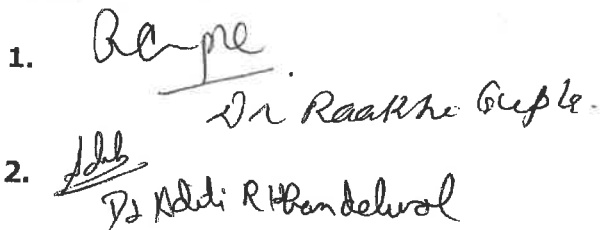 1.
Dr Raakhi Gupta.
2.
Dr Aditi R Khandelwal